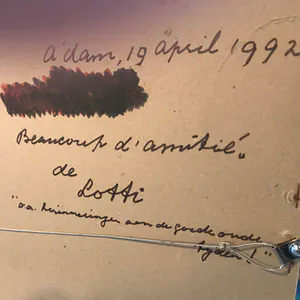 A'dam, 19 april 1992
Beaucoup d'amitié„
de
Lotti
"o.a. herinneringen aan de goede oude
tyden!"